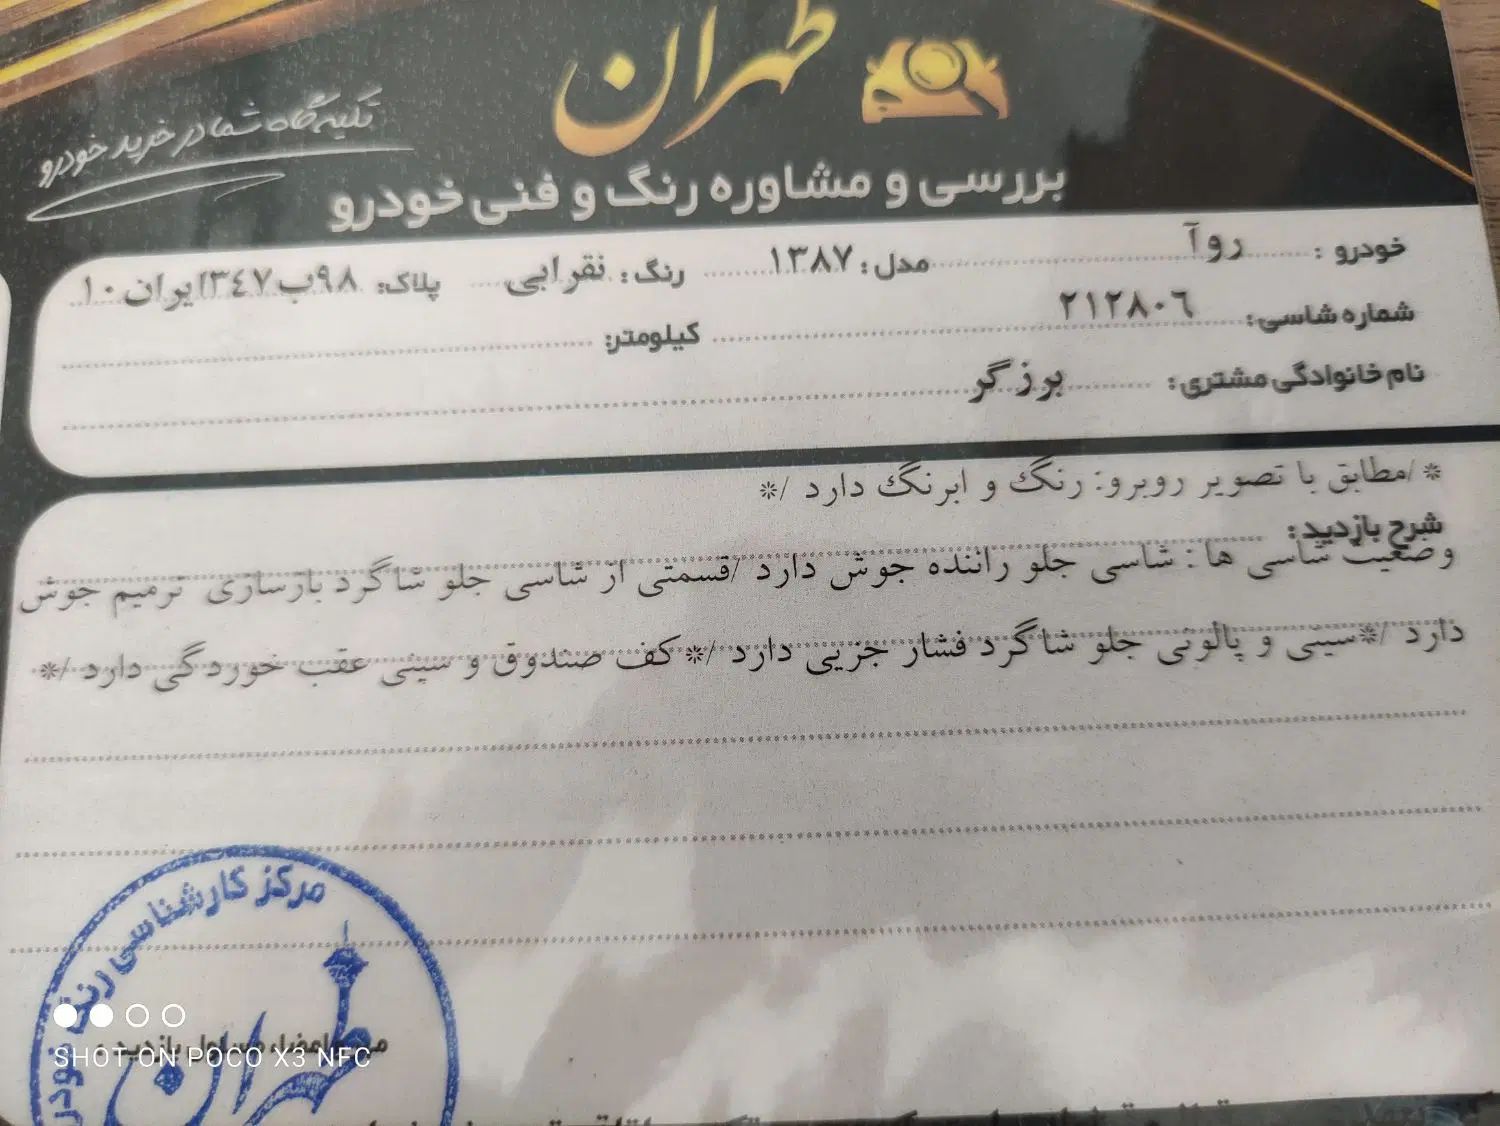 طهران
تکیه گاه شما در خرید خودرو
بررسی و مشاوره رنگ و فنی خودرو
خودرو : روآ مدل : ۱۳۸۷ رنگ : نقرابی پلاک: ۹۸ب۳٤۷ایران۱۰
شماره شاسی: ۲۱۲۸۰٦ کیلومتر:
نام خانوادگی مشتری: برزگر
*/مطابق با تصویر روبرو: رنگ و ابرنگ دارد /*
شرح بازدید:
وضعیت شاسی ها : شاسی جلو راننده جوش دارد /قسمتی از شاسی جلو شاگرد بازسازی ترمیم جوش
دارد /*سینی و پالونی جلو شاگرد فشار جزیی دارد /*کف صندوق و سینی عقب خوردگی دارد /*
مرکز کارشناسی رنگ خودرو
طهران
SHOT ON POCO X3 NFC